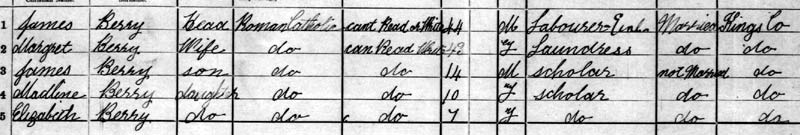 1 James Berry Head Roman Catholic cant Read or Write 44 M Labourer Married Kings Co
2 Margret Berry Wife do can Read Write 43 F Laundress do do
3 James Berry son do do 14 M scholar not Married do
4 Madline Berry daughter do do 10 F scholar do do
5 Elizabeth Berry do do do 7 F do do do